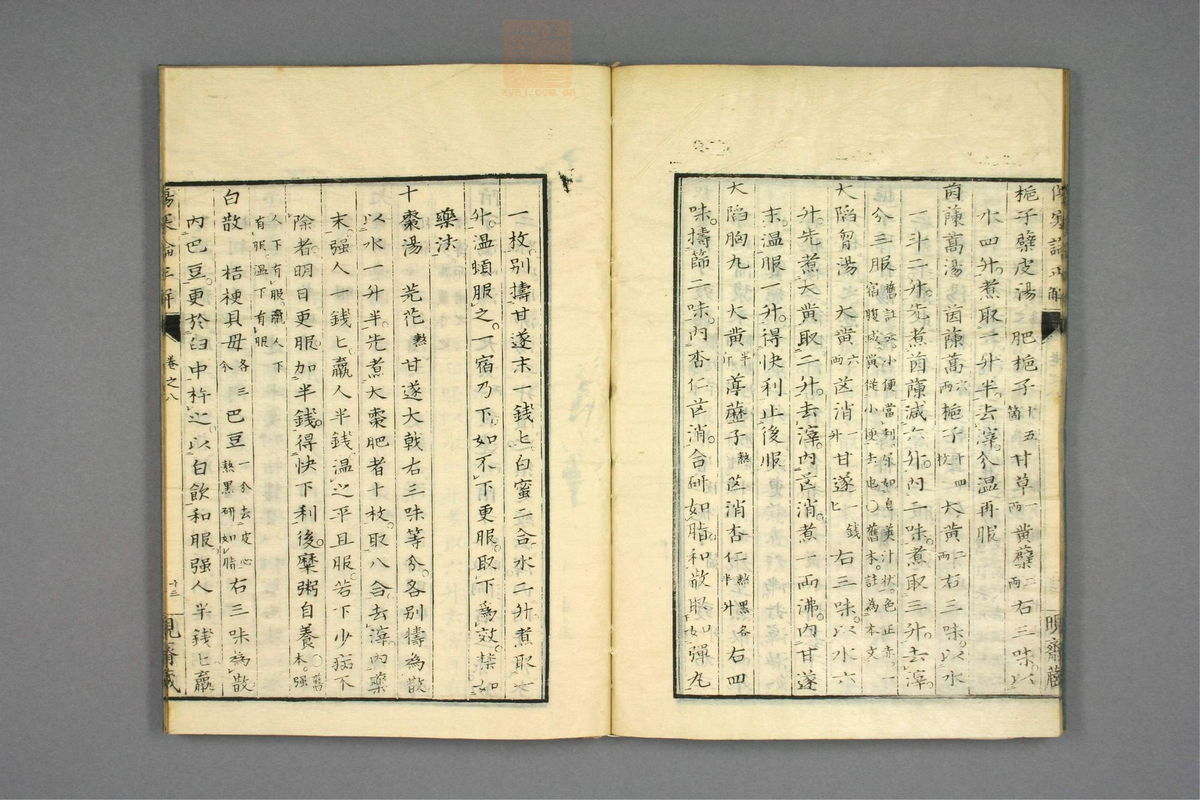 梔子蘗皮湯 肥梔子十五箇甘草一兩黃蘗二兩右三味以
水四升煮取一升半去滓分温再服
茵蔯蒿湯茵蔯蒿六兩梔子十四枚大黃二兩右三味以水
一斗二升先煮茵蔯減六升內二味煮取三升去滓
分三服舊註云小便當利尿如皂莢汁狀色正赤一宿腹減黃從小便去也〇舊本註為本文
大陷胷湯 大黃六兩芒消一升甘遂一錢匕右三味以水六
升先煮大黃取二升去滓內芒消煮一兩沸內甘遂
末温服一升得快利止後服
大陷胸丸 大黃半斤葶藶子熬芒消杏仁熬黑各半升右四
味擣篩二味內杏仁芒消合研如脂和散取如彈丸
一枚別擣甘遂末一錢匕白蜜二合水二升煮取一
升温頓服之一宿乃下如不下更服取下為效禁如
藥法
十棗湯 芫花熬甘遂大戟右三味等分各別擣為散
以水一升半先煮大棗肥者十枚取八合去滓內藥
末强人一錢匕羸人半錢温之平旦服若下少病不
除者明日更服加半錢得快下利後糜粥自養〇舊本强
人下有服羸人下有服温下有服
白散 桔梗貝母各三分巴豆一分去皮心熬黑研如脂右三味為散
內巴豆更於臼中杵之以白飲和服强人半錢匕羸
卷之八
十三